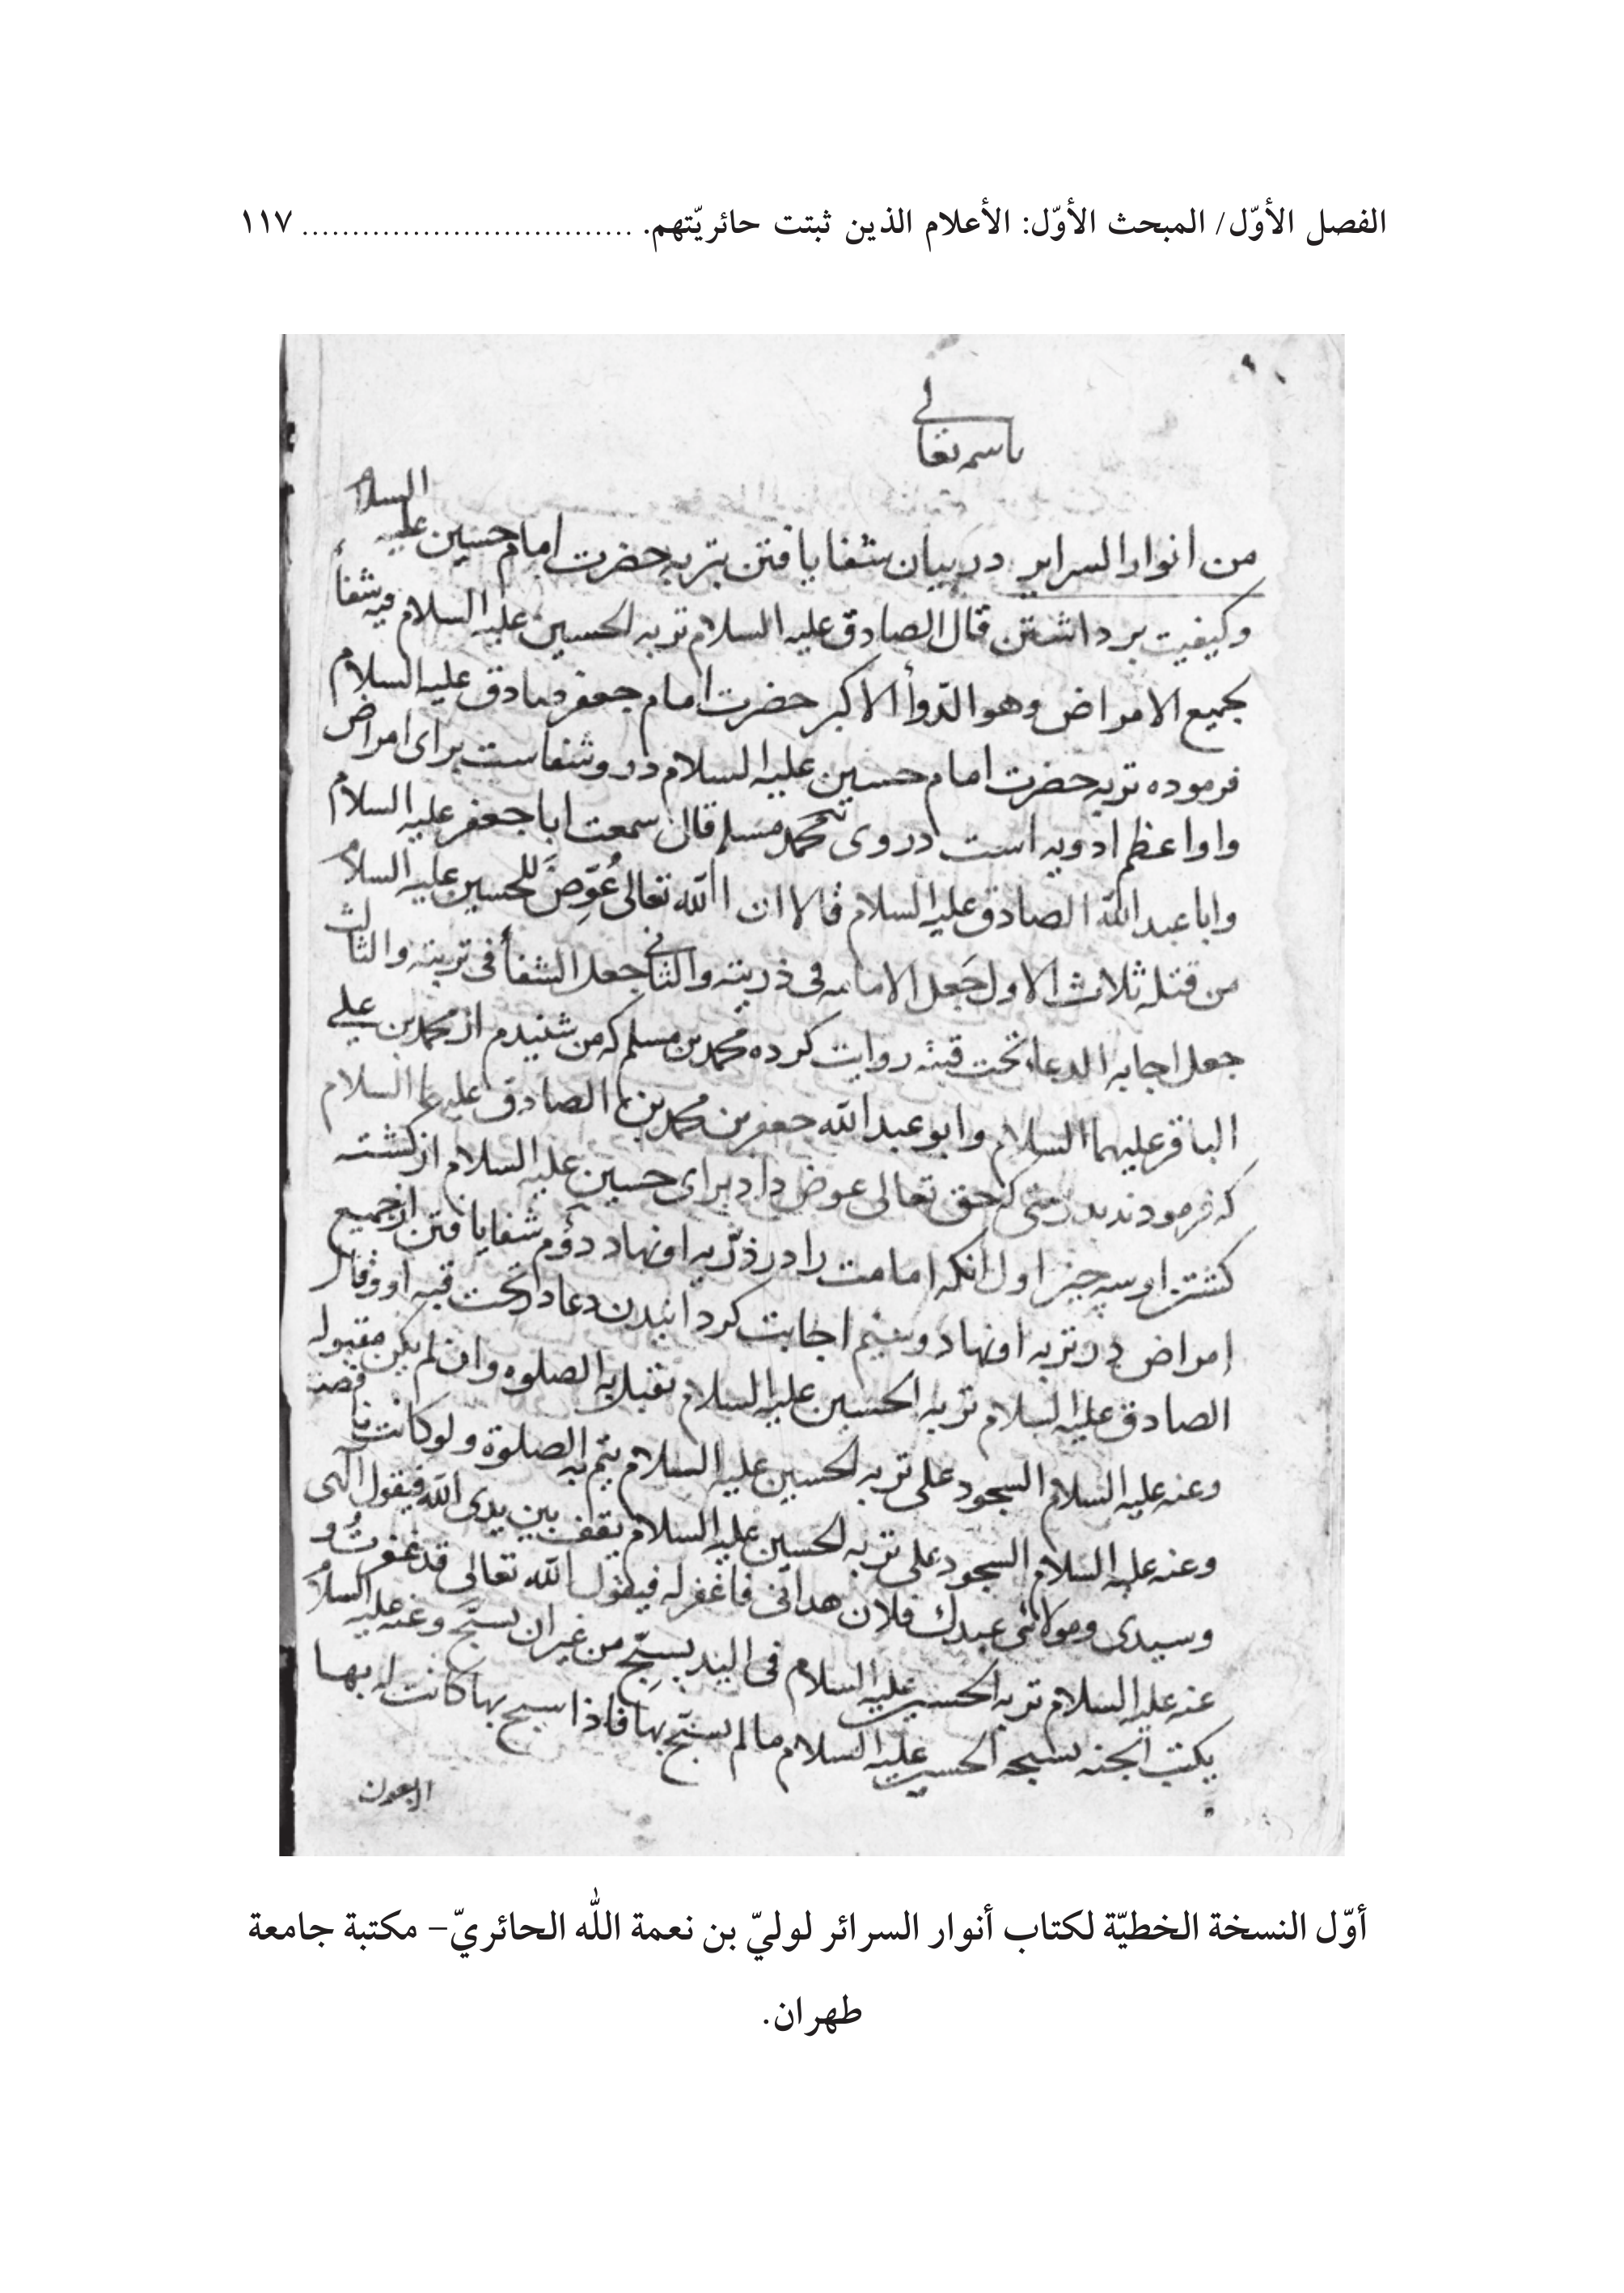 الفصل الأوّل/ المبحث الأوّل: الأعلام الذين ثبتت حائريّتهم. ................................. ١١٧
باسمه تعالى
من انوار السراير در بيان شفا يافتن بتربه حضرت امام حسين عليه السلام
وكيفيت برداشتن قال الصادق عليه السلام تربه الحسين عليه السلام فيه شفأ
لجميع الامراض وهو الدّوأ الاكبر حضرت امام جعفر صادق عليه السلام
فرموده تربه حضرت امام حسين عليه السلام درو شفاست براى امراض
واو اعظم ادويه است دروى محمد مسلم قال سمعت ابا جعفر عليه السلام
وابا عبد الله الصادق عليه السلام قالا ان الله تعالى عُوّضَ للحسين عليه السلام
من قتله ثلاث الاول جَعل الامامه فى ذريته والثانى جعل الشفأ فى تربته والثالث
جعل اجابه الدعا تحت قبته روايت كرده محمد بن مسلم كه من شنيدم از محمد بن على
الباقر عليهما السلام وابو عبد الله جعفر بن محمد بن الصادق عليهما السلام
كه فرمودند بدرستى كه حق تعالى عوض داد براى حسين عليه السلام از كشته
كشتن او سه چيز اول انكه امامت را در ذرّيه او نهاد دوّم شفا يافتن از جميع
امراض در تربه او نهاد وسيّم اجابت كردانيدن دعا در تحت قبه او وقال
الصادق عليه السلام تربه الحسين عليه السلام تقبل به الصلوه وان لم يكن مقبوله
وعنه عليه السلام السجود على تربه الحسين عليه السلام يتم به الصلوة ولو كانت ناقصه
وعنه عليه السلام السجود على تربه الحسين عليه السلام يقف بين يدى الله فيقول الهى
وسيدى ومولائى عبدك فلان هداتى فاغفر له فيقول الله تعالى قد غفرتُ و
عنه عليه السلام تربه الحسين عليه السلام فى اليد يسبّح من غير ان يسبّح وعنه عليه السلام
يكتب الجنه بسبحه الحسين عليه السلام ما لم يسبّح بها فاذا سبح بها كانت له بها
اربعون
أوّل النسخة الخطيّة لكتاب أنوار السرائر لوليّ بن نعمة الله الحائريّ– مكتبة جامعة
طهران.